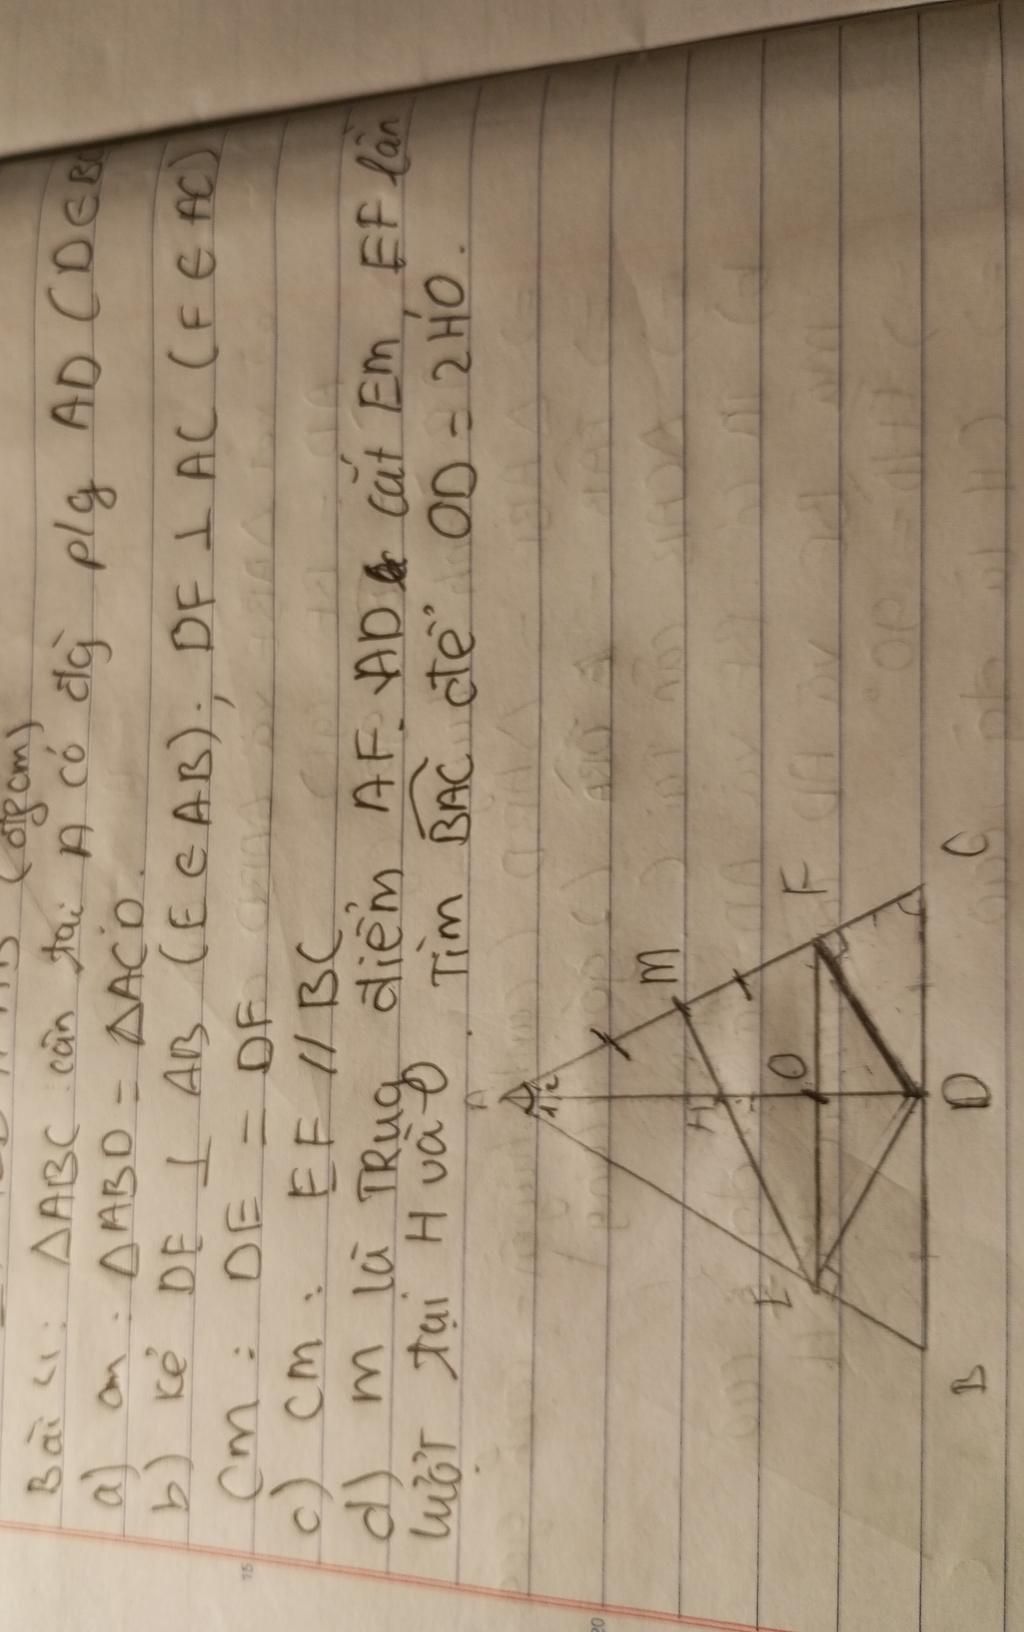 (đpcm)
Bài 4: ΔABC cân tại A có đg̀ p/g AD (D ∈ BC
a) cm: ΔABD = ΔACD.
b) kẻ DE ⊥ AB (E ∈ AB); DF ⊥ AC (F ∈ AC)
Cm: DE = DF
c) CM: EF // BC
d) M là TRung điểm AF. AD cắt EM, EF lần
lượt tại H và O. Tìm BAC để OD = 2HO.
A
1 2
M
H
O
F
E
B
D
C
15
20